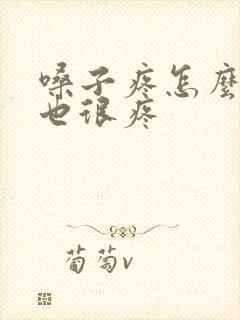 嗓子疼怎麼
也很疼
葡萄v